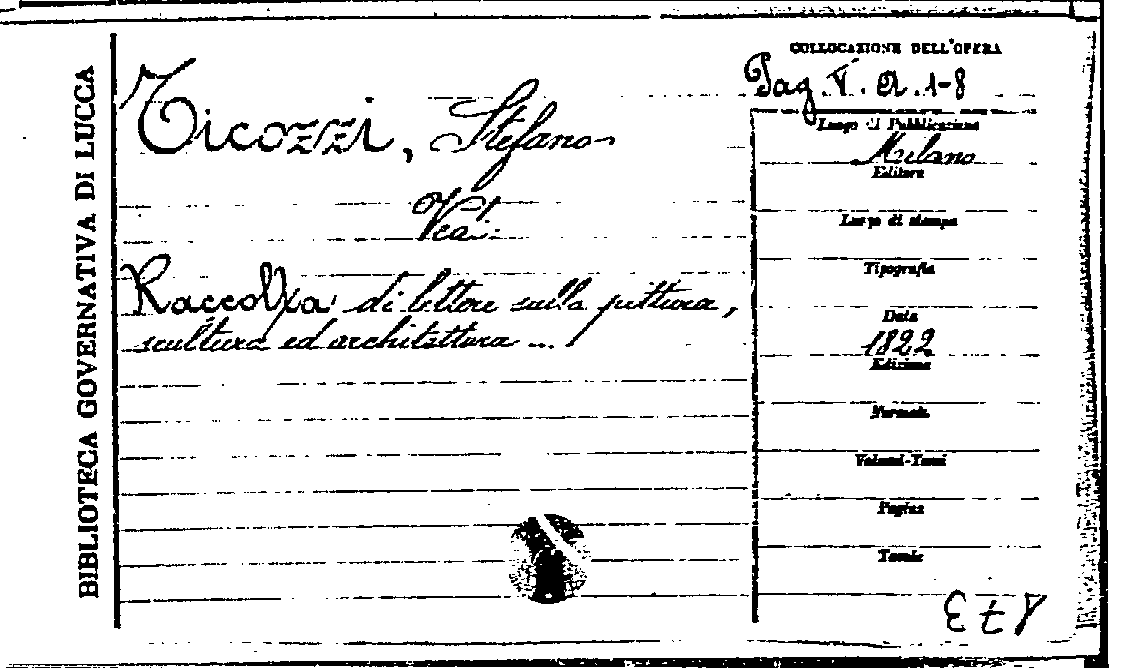 BIBLIOTECA GOVERNATIVA DI LUCCA
Ticozzi, Stefano
Ved:
Raccolta di lettere sulla pittura,
scultura ed architettura ...
COLLOCAZIONE DELL'OPERA
Pag. V. A. 1-8
Luogo di Pubblicazione
Milano
Editore
Luogo di stampa
Tipografia
Data
1822
Edizione
Formato
Volumi-Tomi
Pagine
Tavole